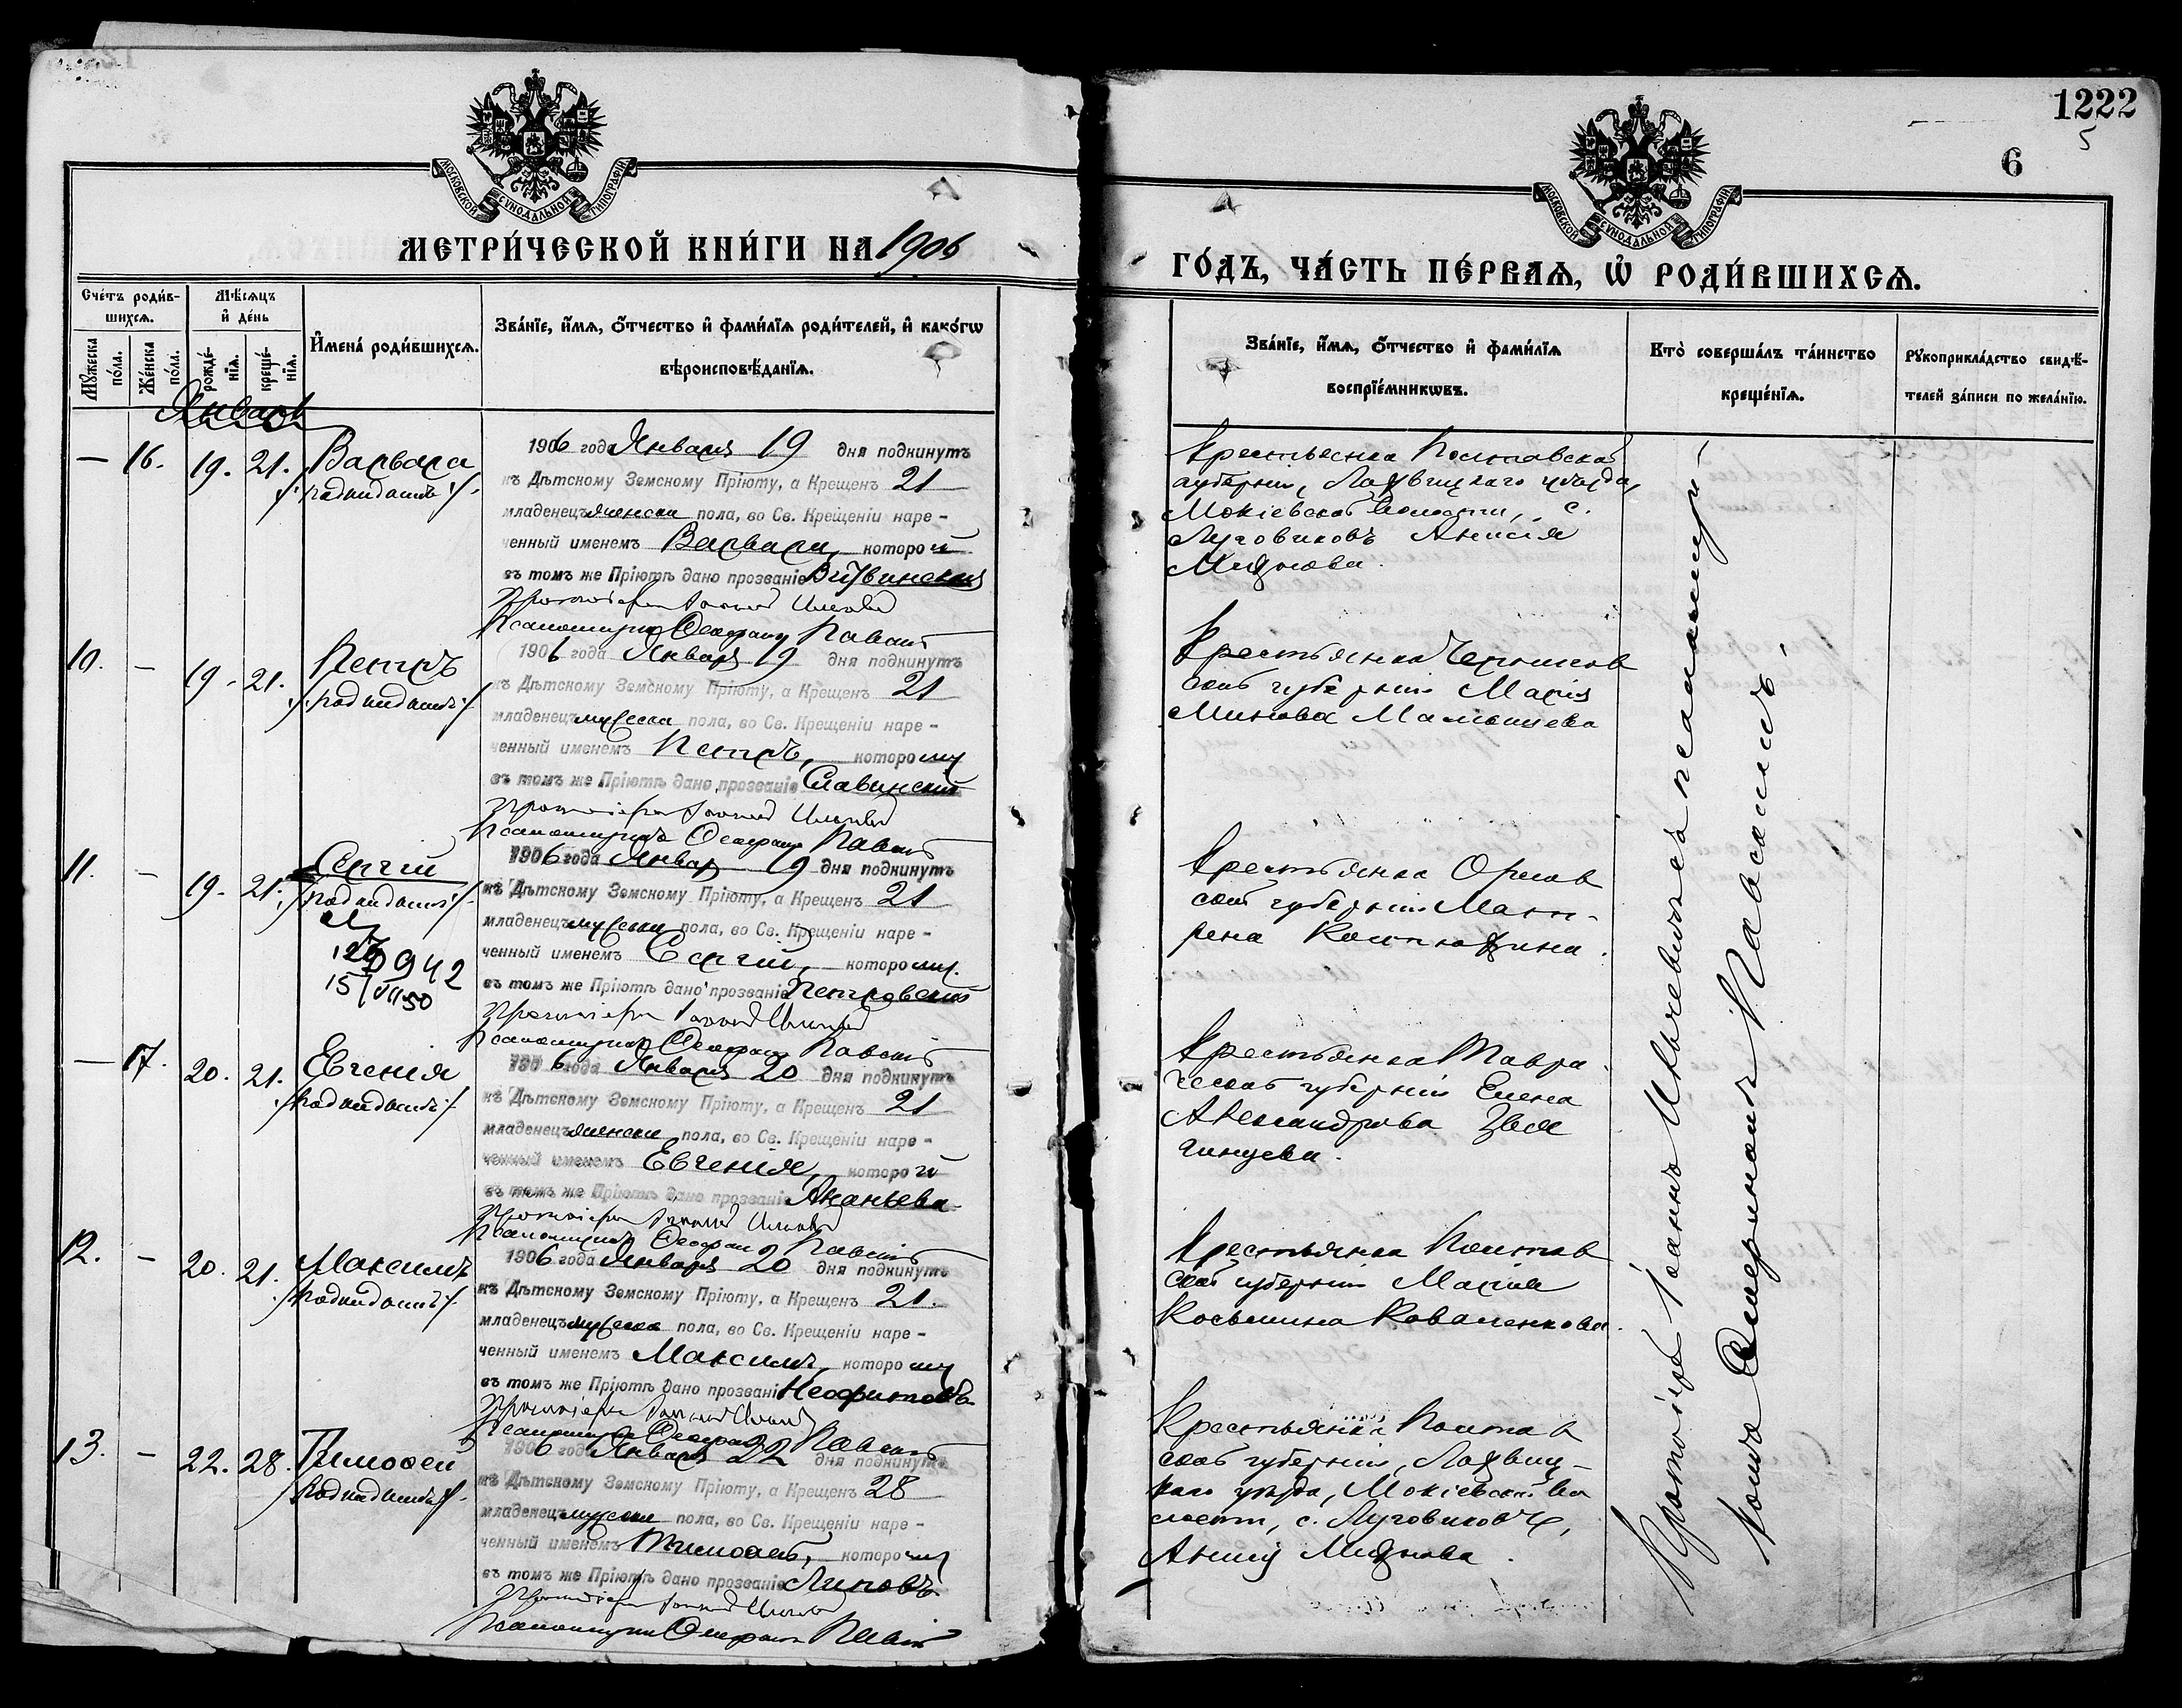 1222
5
6
МОСКОВСКОЙ СѴНОДАЛЬНОЙ ТИПОГРАФІИ
МОСКОВСКОЙ СѴНОДАЛЬНОЙ ТИПОГРАФІИ
МЕТРИ́ЧЕСКОЙ КНИ́ГИ НА 1906
ГО́ДЪ, ЧА́СТЬ ПЕ́РВАЯ, Ѡ҆ РОДИ́ВШИХСЯ.
Сче́тъ роди́в-
шихся.
Мѣ́сяцъ
и҆ де́нь
Мꙋ́жеска
по́ла.
Же́нска
по́ла.
рожде́-
нїя.
креще́-
нїя.
И҆мена̀ роди́вшихся.
Зва́нїе, и҆́мя, ѻ҆́тчество и҆ фами́лїя роди́телей, и҆ како́гѡ
вѣроисповѣ́данїя.
Зва́нїе, и҆́мя, ѻ҆́тчество и҆ фами́лїя
воспрїе́мникѡвъ.
Кто̀ соверша́лъ та́инство
креще́нїя.
Рꙋкоприкла́дство свидѣ́-
телей за́писи по жела́нїю.
Январь
— 16. 19. 21. Варвара
/: подкидышъ :/
1906 года Января 19 дня подкинутъ
къ Дѣтскому Земскому Пріюту, а Крещенъ 21
младенецъ женска пола, во Св. Крещеніи наре-
ченный именемъ Варвара, которой
въ томъ же Пріютѣ дано прозваніе
Протоіерей Іоаннъ
Псаломщикъ Павскій
Крестьянка Полтавской
губерніи, Лохвицкаго уѣзда,
Мокіевской волости, с.
Луговиковъ Анисія
10. — 19. 21. Петръ
/: подкидышъ :/
1906 года Января 19 дня подкинутъ
къ Дѣтскому Земскому Пріюту, а Крещенъ 21
младенецъ мужеска пола, во Св. Крещеніи наре-
ченный именемъ Петръ, которому
въ томъ же Пріютѣ дано прозваніе Славинскій
Протоіерей Іоаннъ
Псаломщикъ Павскій
Крестьянка Чернигов
ской губерніи Марія
Минова
11. — 19. 21. Сергій
/: подкидышъ :/
0942
15/VII 50
1906 года Январ 19 дня подкинутъ
къ Дѣтскому Земскому Пріюту, а Крещенъ 21
младенецъ мужеска пола, во Св. Крещеніи наре-
ченный именемъ Сергій, которому
въ томъ же Пріютѣ дано прозваніе Петровскій
Протоіерей Іоаннъ
Псаломщикъ Павскій
Крестьянка Орлов
ской губерніи Мат-
рена
— 17. 20. 21. Евгенія
/: подкидышъ :/
1906 года Января 20 дня подкинутъ
къ Дѣтскому Земскому Пріюту, а Крещенъ 21
младенецъ женска пола, во Св. Крещеніи наре-
ченный именемъ Евгенія, которой
въ томъ же Пріютѣ дано прозваніе Ананьева
Протоіерей Іоаннъ
Псаломщикъ Павскій
Крестьянка Таври
ческой губерніи Елена
Александрова Звя
гинцева.
12. — 20. 21. Максимъ
/: подкидышъ :/
1906 года Января 20 дня подкинутъ
къ Дѣтскому Земскому Пріюту, а Крещенъ 21.
младенецъ мужеска пола, во Св. Крещеніи наре-
ченный именемъ Максимъ, которому
въ томъ же Пріютѣ дано прозваніе Неофитовъ
Протоіерей Іоаннъ
Псаломщикъ Павскій
Крестьянка Полтав
ской губерніи Марія
Косьмина Коваленкова.
13. — 22. 28. Тимофей
/: подкидышъ :/
1906 года Января 22 дня подкинутъ
къ Дѣтскому Земскому Пріюту, а Крещенъ 28
младенецъ мужеска пола, во Св. Крещеніи наре-
ченный именемъ Тимофей, которому
въ томъ же Пріютѣ дано прозваніе Липовъ
Протоіерей Іоаннъ
Псаломщикъ Павскій
Крестьянка Полтав
ской губерніи, Лохвиц-
каго уѣзда, Мокіевской во
лости, с. Луговиковъ,
Протоіерей Іоаннъ съ псаломщи-
комъ Павскимъ.